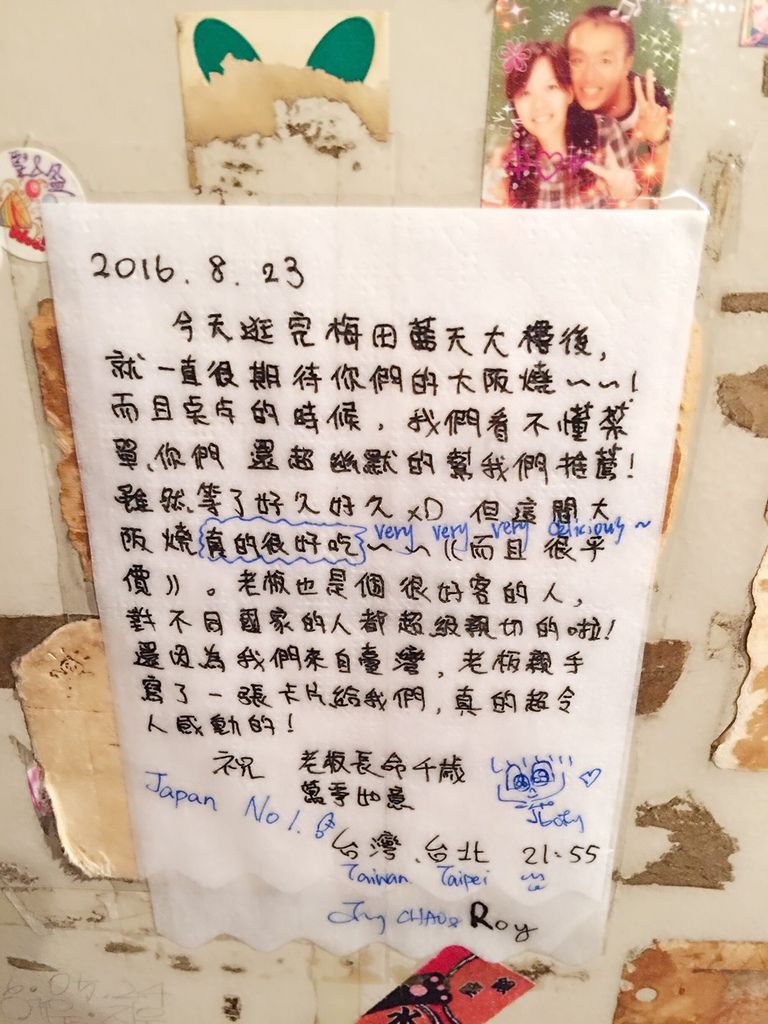 2016.8.23
今天逛完梅田藍天大樓後,
就一直很期待你們的大阪燒~~!
而且桌点的時候,我們看不懂菜
單,你們還超幽默的幫我們推薦!
雖然等了好久好久xD 但這間大
very very very delicious~
阪燒真的很好吃~~((而且很平
價))。老板也是個很好客的人,
對不同國家的人都超級親切的啦!
還因為我們來自臺灣,老板親手
寫了一張卡片給我們,真的超令
人感動的!
祝 老板長命千歲
萬事如意
Japan No1.
台灣.台北 21:55
Taiwan Taipei
CHAO& Roy